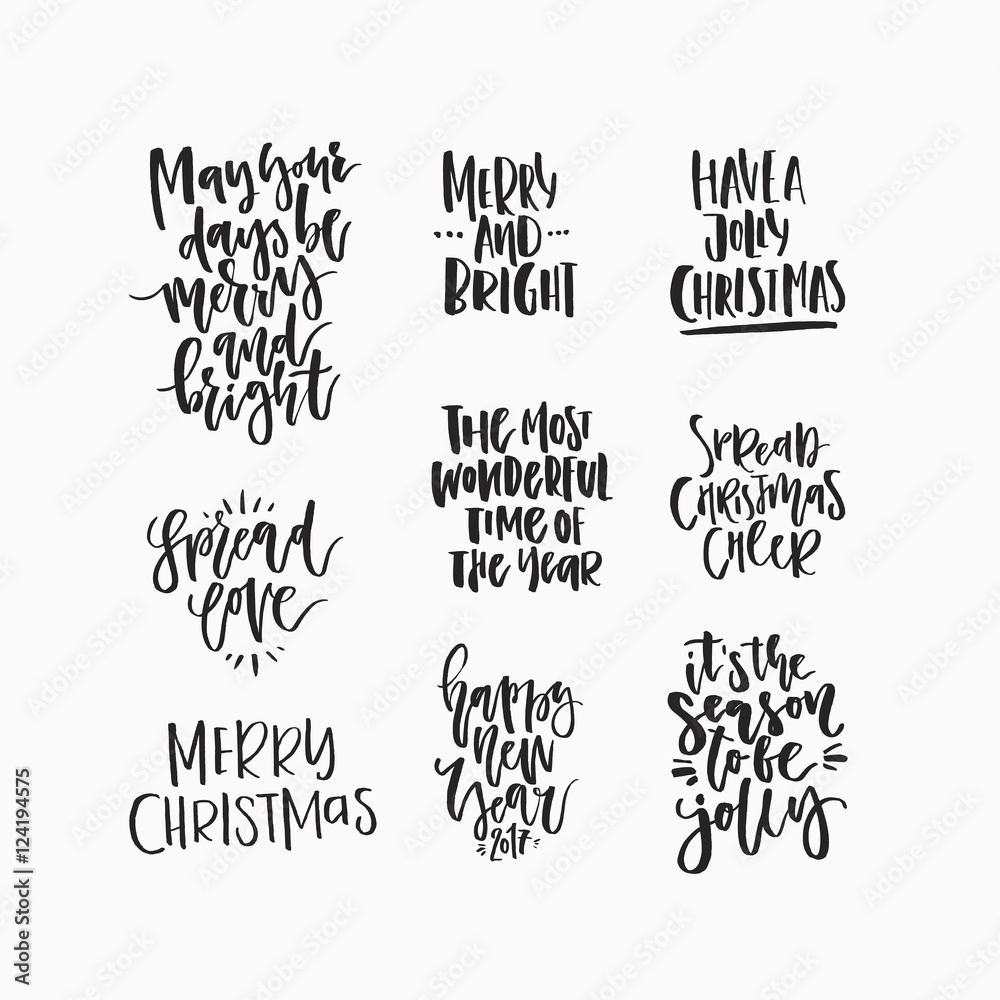 May your
days be
merry
and
bright
MERRY
... AND ...
BRIGHT
HAVE A
JOLLY
CHRISTMAS
Spread
love
THE MOST
WONDERFUL
TIME OF
THE YEAR
SPREAD
CHRISTMAS
CHEER
MERRY
CHRISTMAS
happy
new
year
2017
it's the
season
to be
jolly
Adobe Stock | #124194575